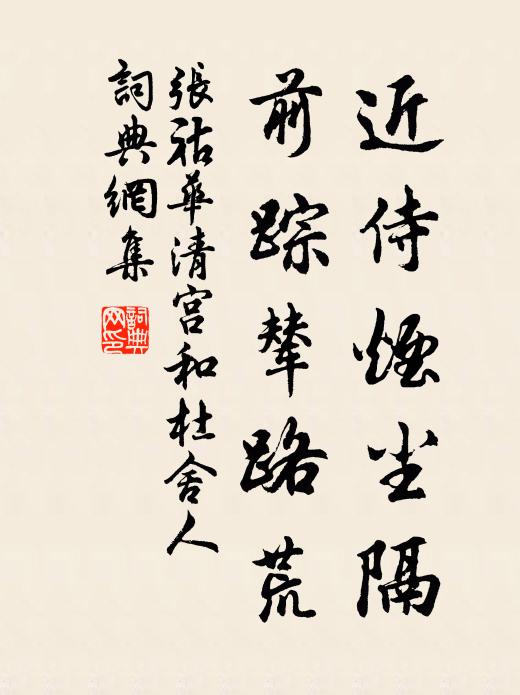 近侍煙尘隔
前踪輦路荒
張祜華清宮和杜舍人
詞典網集
詞典网印